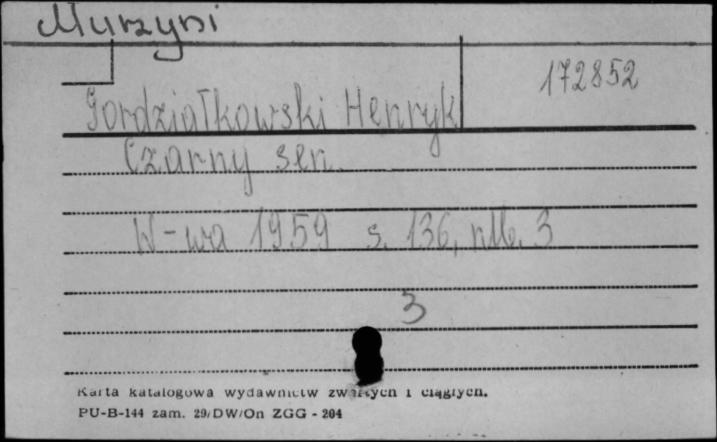 Murzyni
172852
Gordziałkowski Henryk
Czarny sen.
W-wa 1959 s. 136, nlb. 3
3
Karta katalogowa wydawnictw zwartych i ciągłych.
PU-B-144 zam. 29/DW/On ZGG - 204